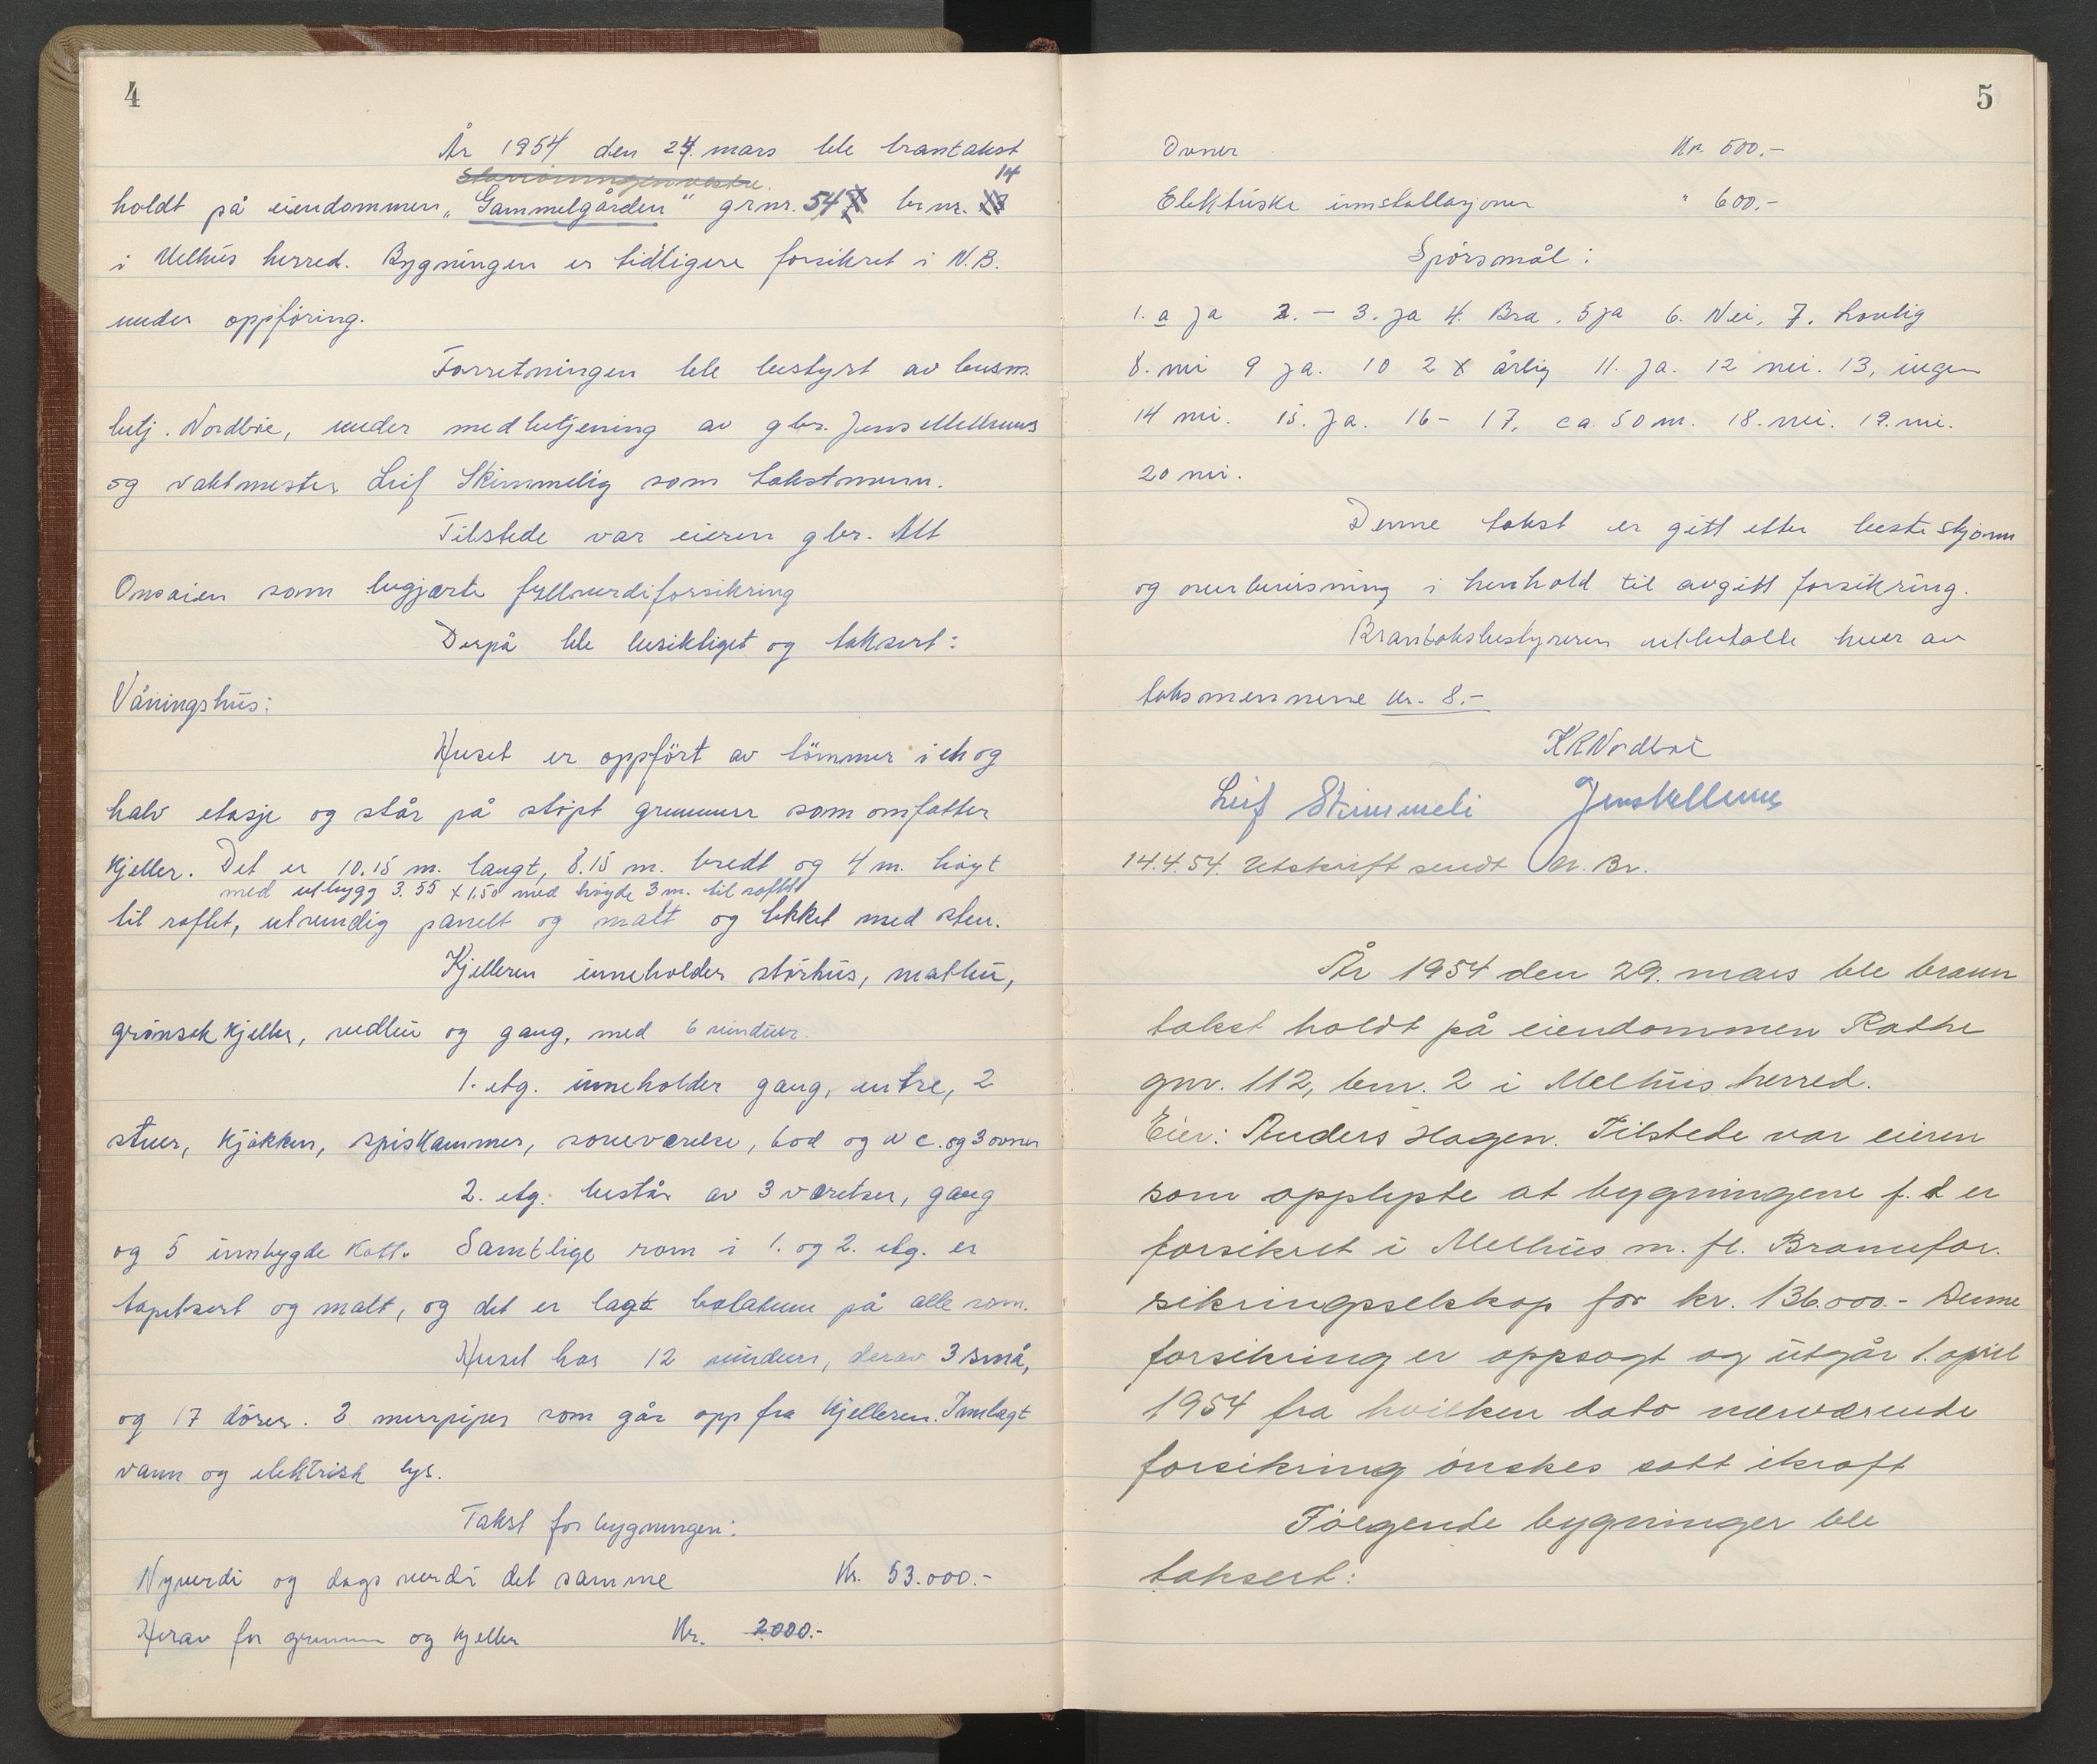 4
År 1954 den 24. mars ble brantakst
14
holdt på eiendommen "Gammelgården" grnr. 54 br nr.
i Melhus herred. Bygningen er tidligere forsikret i N.B.
under oppføring.
Forretningen ble bestyrt av lensm.
betj. Nordbøe, under medbetjening av gbr. Jens Melhuus
og vaktmester Leif Skimmelig som takstmenn.
Tilstede var eieren gbr. Alt
Onsøien som begjærte fullverdiforsikring
Derpå ble besiktiget og taksert:
Våningshus:
Huset er oppført av tømmer i en og
halv etasje og står på støpt grunmur som omfatter
kjeller. Det er 10.15 m. langt, 8.15 m. bredt og 4 m. høyt
med utbygg 3.55 x 1.50 med høyde 3 m. til raftet
til raftet, utvendig panelt og malt og tekket med sten.
Kjelleren inneholder størhus, matbu,
grønsak kjeller, vedbu og gang, med 6 vinduer.
1. etg. inneholder gang, entre, 2
stuer, kjøkken, spiskammer, soveværelse, bod og w c. og 3 ovner
2. etg. består av 3 værelser, gang
og 5 innbygde kott. Samtlige rom i 1. og 2. etg. er
tapetsert og malt, og det er lagt balatum på alle rom.
Huset har 12 vinduer, derav 3 små,
og 17 dører. 2 murpiper som går opp fra kjelleren. Innlagt
vann og elektrisk lys.
Takst for bygningen:
Nyverdi og dags verdi det samme Kr. 53.000.-
Herav for grunmur og kjeller Kr. 2000.-
5
Ovner Kr. 500.-
Elektriske innstallasjoner " 600.-
Spørsmål:
1. a ja 2. - 3. ja 4. Bra. 5 ja 6. Nei, 7. Lovlig
8. nei 9 ja. 10 2 x årlig 11. ja. 12 nei. 13, ingen
14 nei. 15. ja. 16 - 17. ca. 50 m. 18. nei. 19. nei.
20 nei.
Denne takst er gitt etter beste skjønn
og overbevisning i henhold til avgitt forsikring.
Brantakstbestyreren utbetalte hver av
taksmennene kr. 8.-
K R Nordbøe
Leif Skimmeli Jens Melhuus
14.4.54. Utskrift sendt N. Br.
År 1954 den 29. mars ble brann
takst holdt på eiendommen Rathe
gnr. 112, bnr. 2 i Melhus herred.
Eier: Anders Hagen. Tilstede var eieren
som opplyste at bygningene f. t er
forsikret i Melhus m. fl. Brannfor-
sikringsselskap for kr. 136.000.- Denne
forsikring er oppsagt og utgår 1. april
1954 fra hvilken dato nærværende
forsikring ønskes satt ikraft
Følgende bygninger ble
taksert: